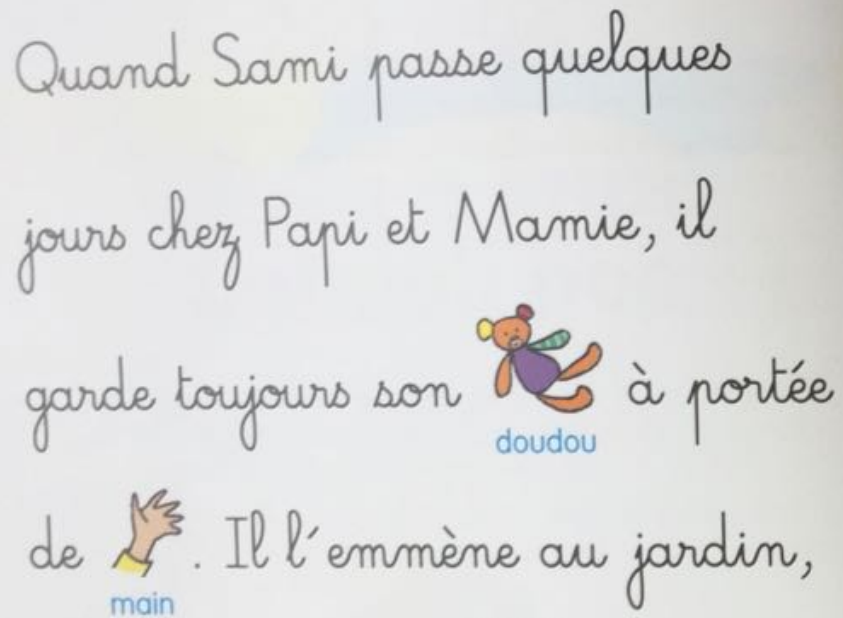 Quand Sami passe quelques
jours chez Papi et Mamie, il
garde toujours son doudou à portée
de main. Il l'emmène au jardin,